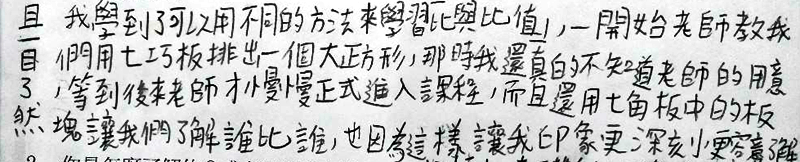 且 我學到了可以用不同的方法來學習比與比值,一開始老師教我
目 們用七巧板排出一個大正方形,那時我還真的不知道老師的用意
了 ,等到後來老師才慢慢正式進入課程,而且還用七角板中的板
然 塊讓我們了解誰比誰,也因為這樣讓我印象更深刻